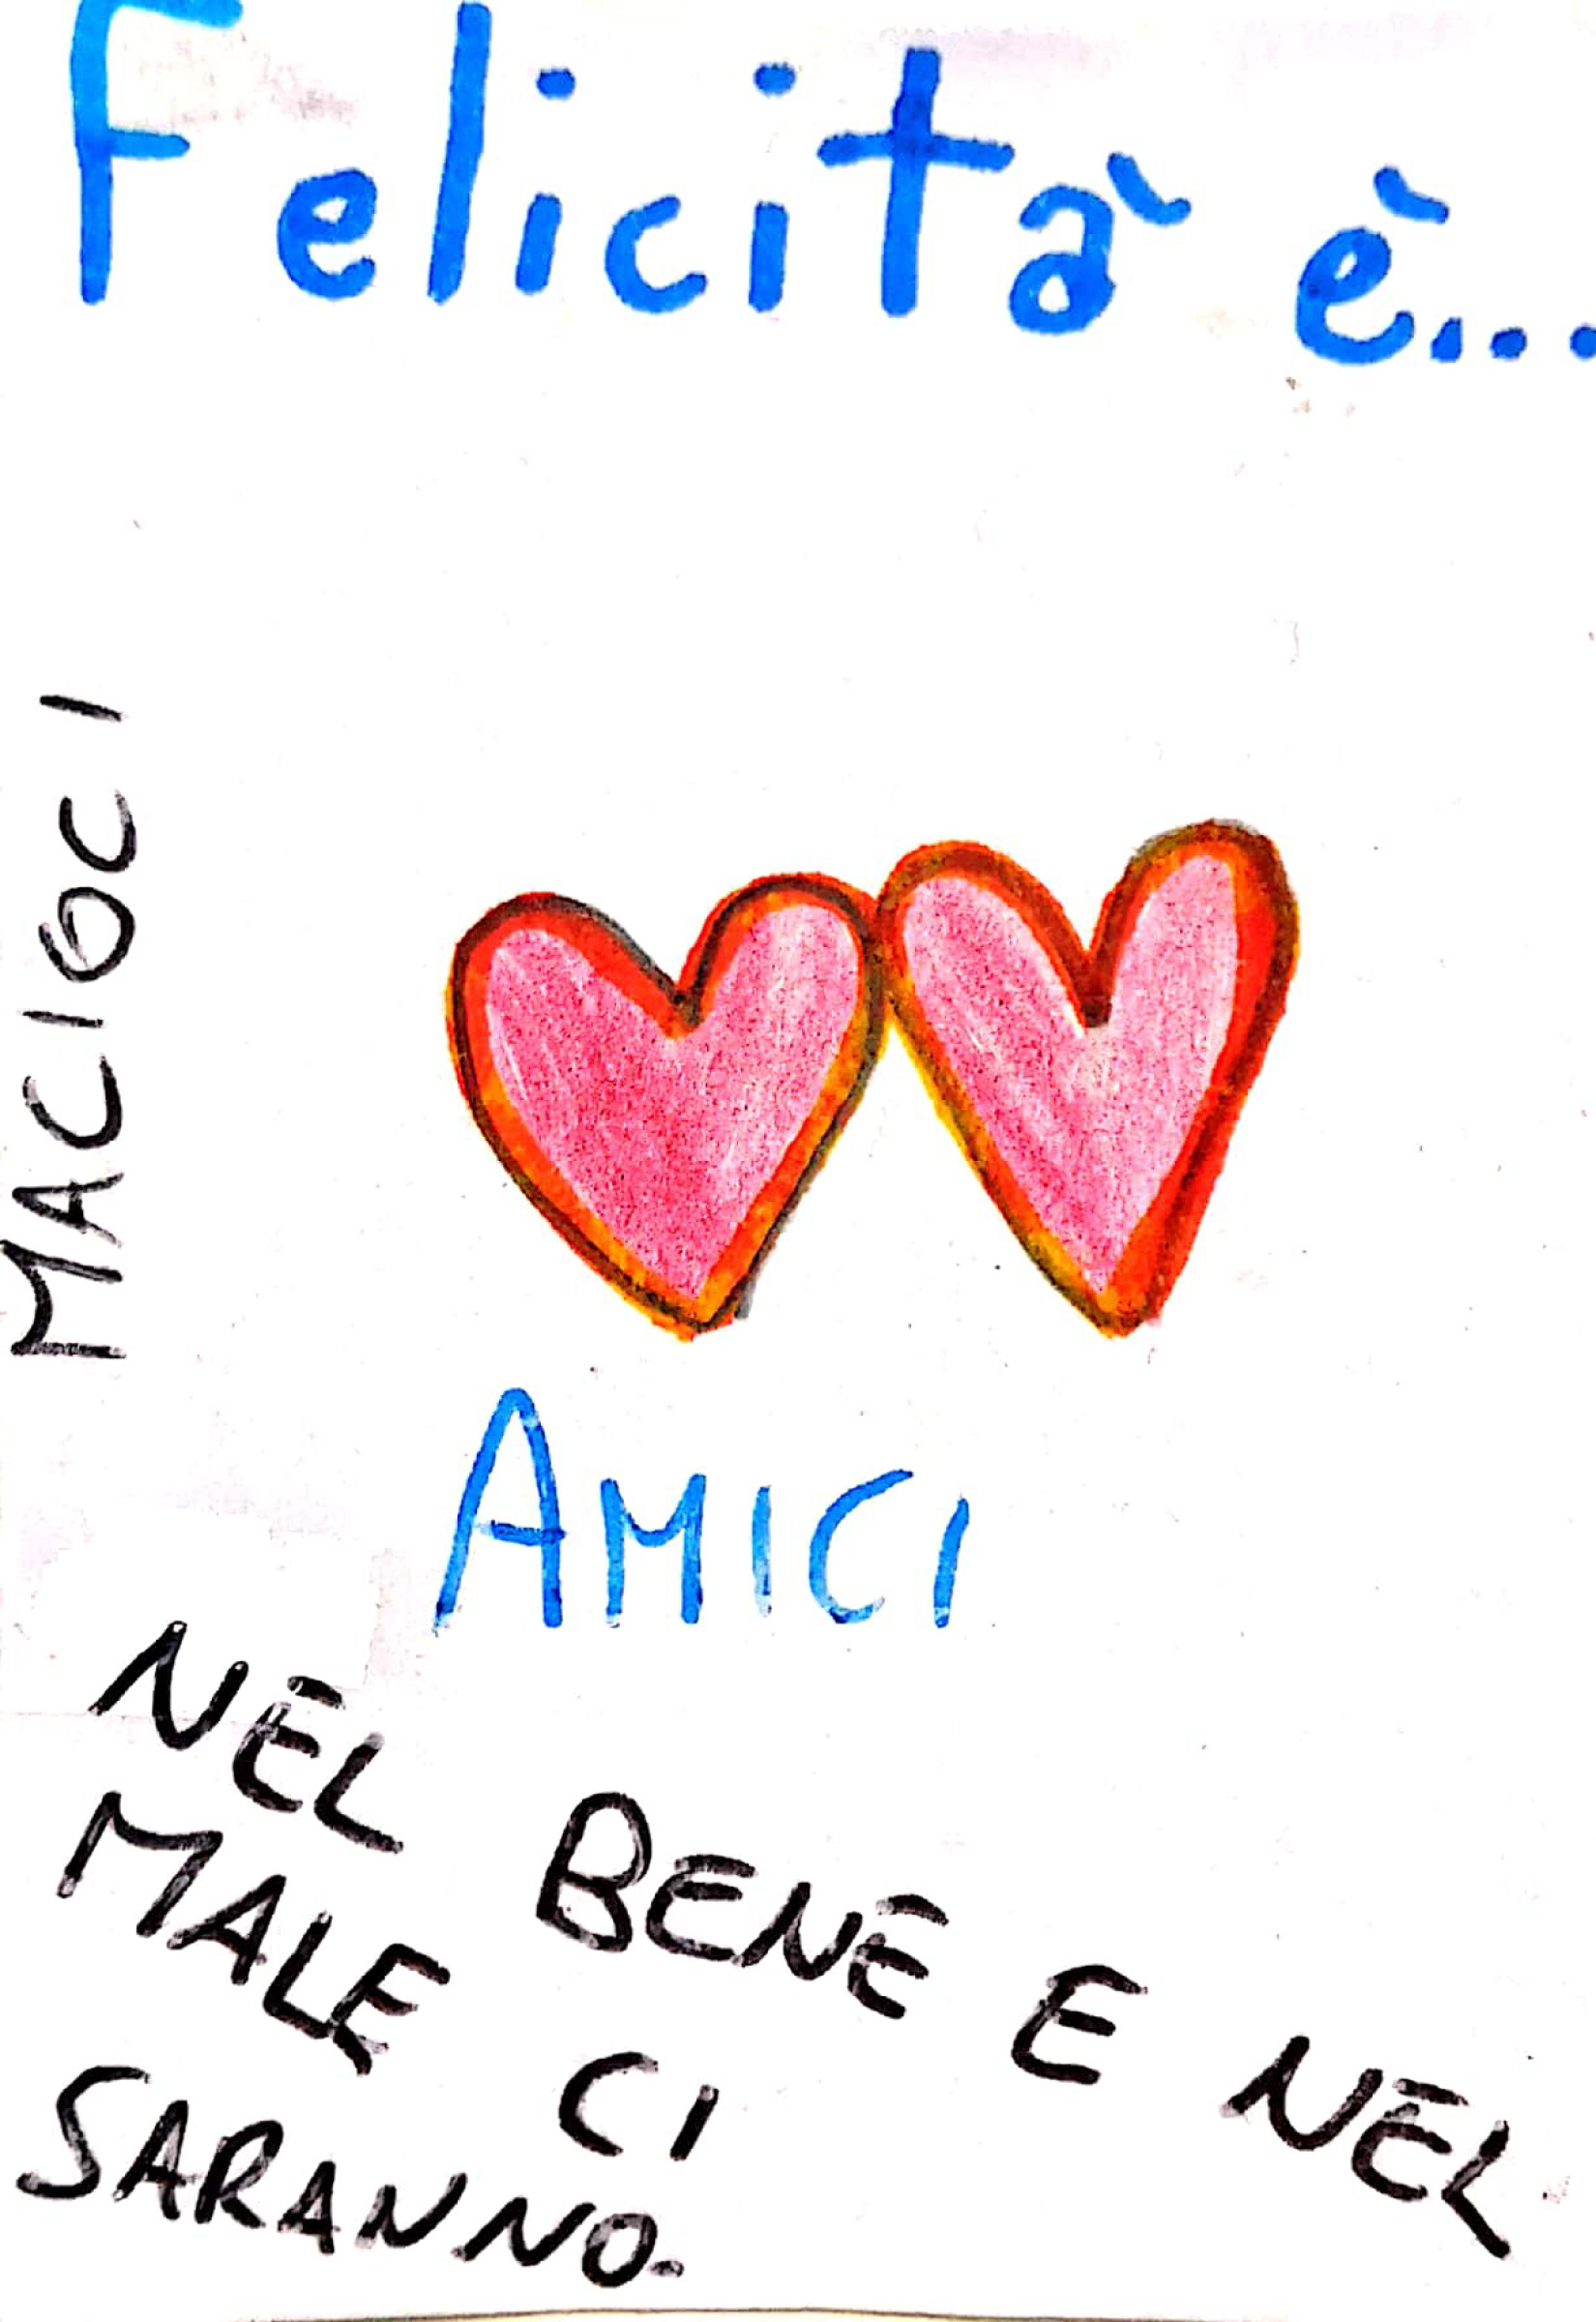 Felicità è...
MACIOCI
AMICI
NEL BENE E NEL
MALE CI
SARANNO.